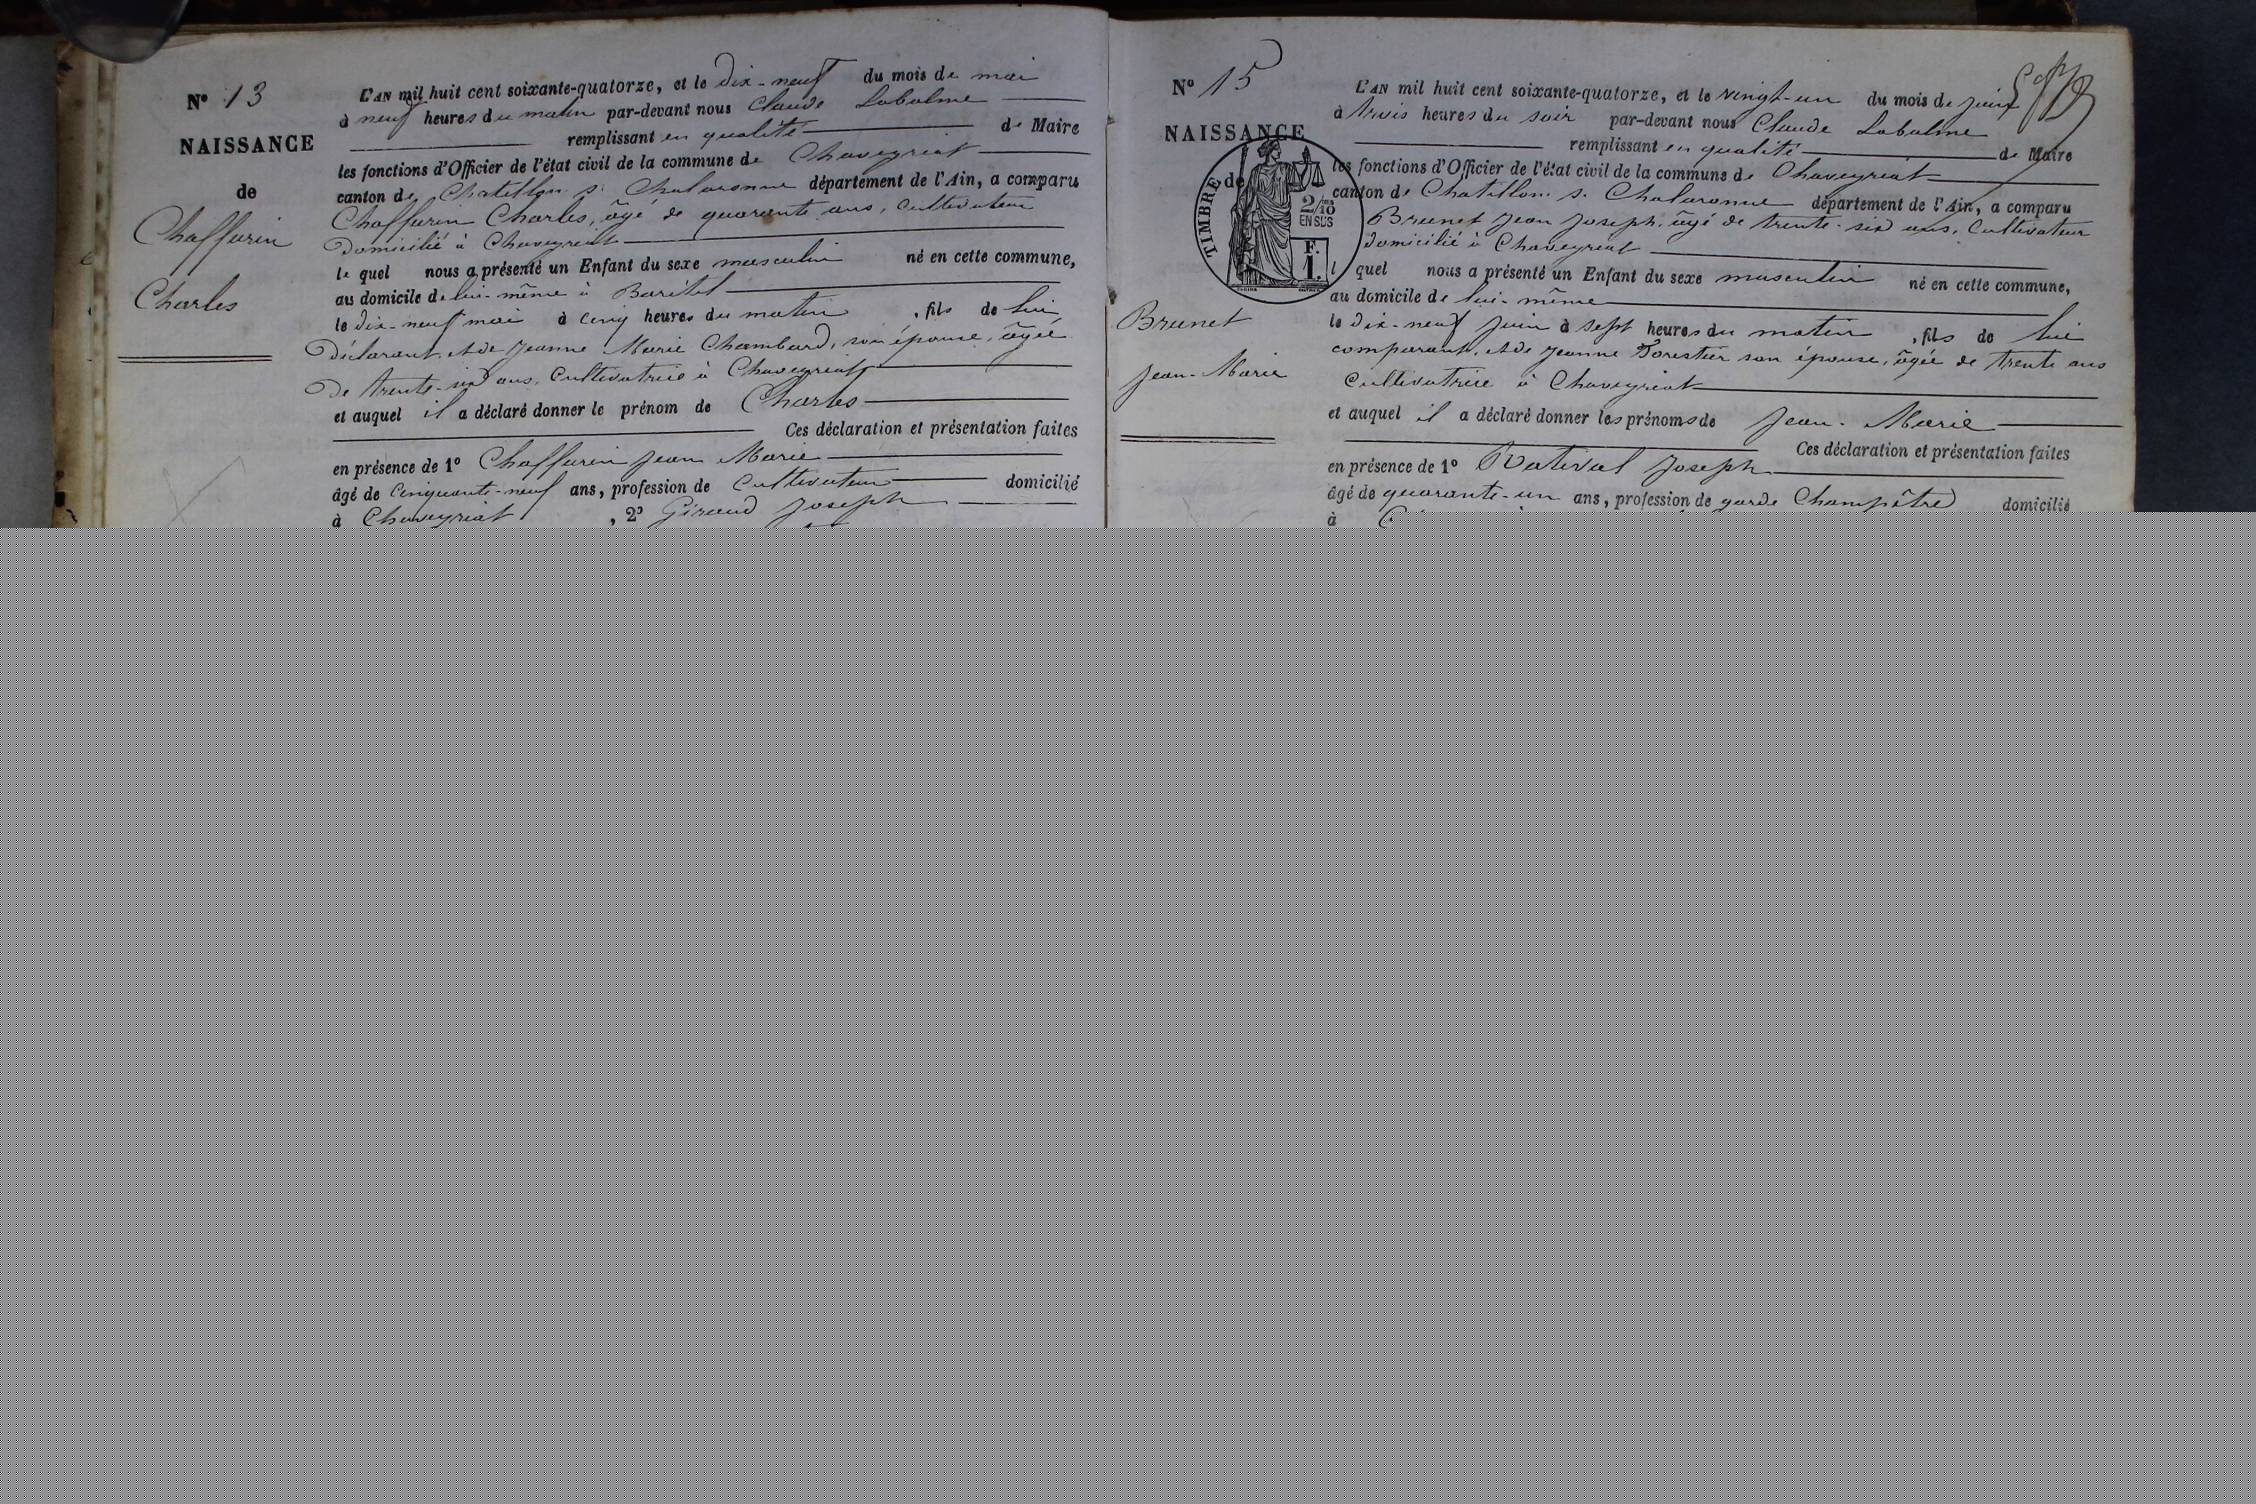 Nº 13
NAISSANCE
de
Chaffurin
Charles
L'AN mil huit cent soixante-quatorze, et le dix-neuf du mois de mai
à neuf heures du matin par-devant nous Claude Labalme
remplissant en qualité de Maire
les fonctions d'Officier de l'état civil de la commune de Chaveyriat
canton de Chatillon s. Chalaronne département de l'Ain, a comparu
Chaffurin Charles, âgé de quarante ans, cultivateur
domicilié à Chaveyriat
le quel nous a présenté un Enfant du sexe masculin né en cette commune,
au domicile de lui-même à Baritel
le dix-neuf mai à cinq heures du matin, fils de lui
déclarant, et de Jeanne Marie Chambard, son épouse, âgée
de trente-six ans, cultivatrice à Chaveyriat
et auquel il a déclaré donner le prénom de Charles
Ces déclaration et présentation faites
en présence de 1º Chaffurin Jean Marie
âgé de cinquante-neuf ans, profession de cultivateur domicilié
à Chaveyriat, 2º Giraud Joseph
Nº 15
NAISSANCE
de
TIMBRE
2/10
EN SUS
F.
1.
Brunet
Jean-Marie
L'AN mil huit cent soixante-quatorze, et le vingt-un du mois de juin
à trois heures du soir par-devant nous Claude Labalme
remplissant en qualité de Maire
les fonctions d'Officier de l'état civil de la commune de Chaveyriat
canton de Chatillon s. Chalaronne département de l'Ain, a comparu
Brunet Jean Joseph, âgé de trente-six ans, cultivateur
domicilié à Chaveyriat
l quel nous a présenté un Enfant du sexe masculin né en cette commune,
au domicile de lui-même
le dix-neuf juin à sept heures du matin, fils de lui
comparant, et de Jeanne Forestier son épouse, âgée de trente ans
cultivatrice à Chaveyriat
et auquel il a déclaré donner les prénoms de Jean-Marie
Ces déclaration et présentation faites
en présence de 1º Rativat Joseph
âgé de quarante-un ans, profession de garde champêtre domicilié
à